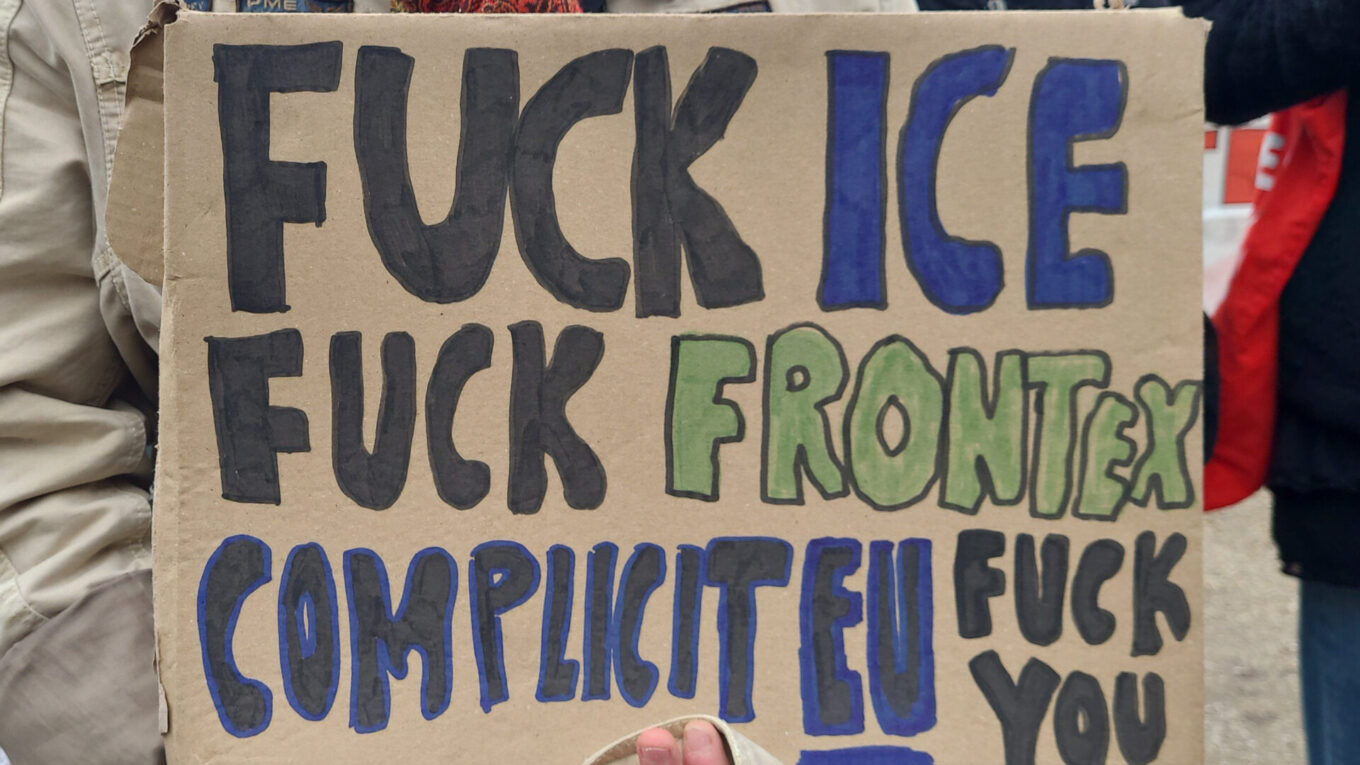 PME
FUCK ICE
FUCK FRONTEX
COMPLICIT EU
FUCK
YOU